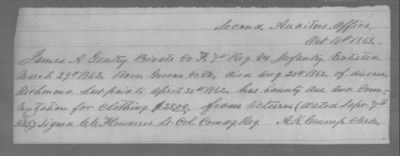 Second Auditors Office,
Oct 10th 1862.
James A. Gentry, Private Co F. 7th Reg Va Infantry, Enlisted
March 29th 1862. from Greene Co. Va, died Aug 1862. of disease,
Richmond. Last paid to April 30th 1862. has bounty due, and Com-
mutation for clothing $25.00. from return (dated Sept 7th
1862) signed C. C. Flowerree Lt. Col. Comdg Reg. A. K. Crump Clerk.